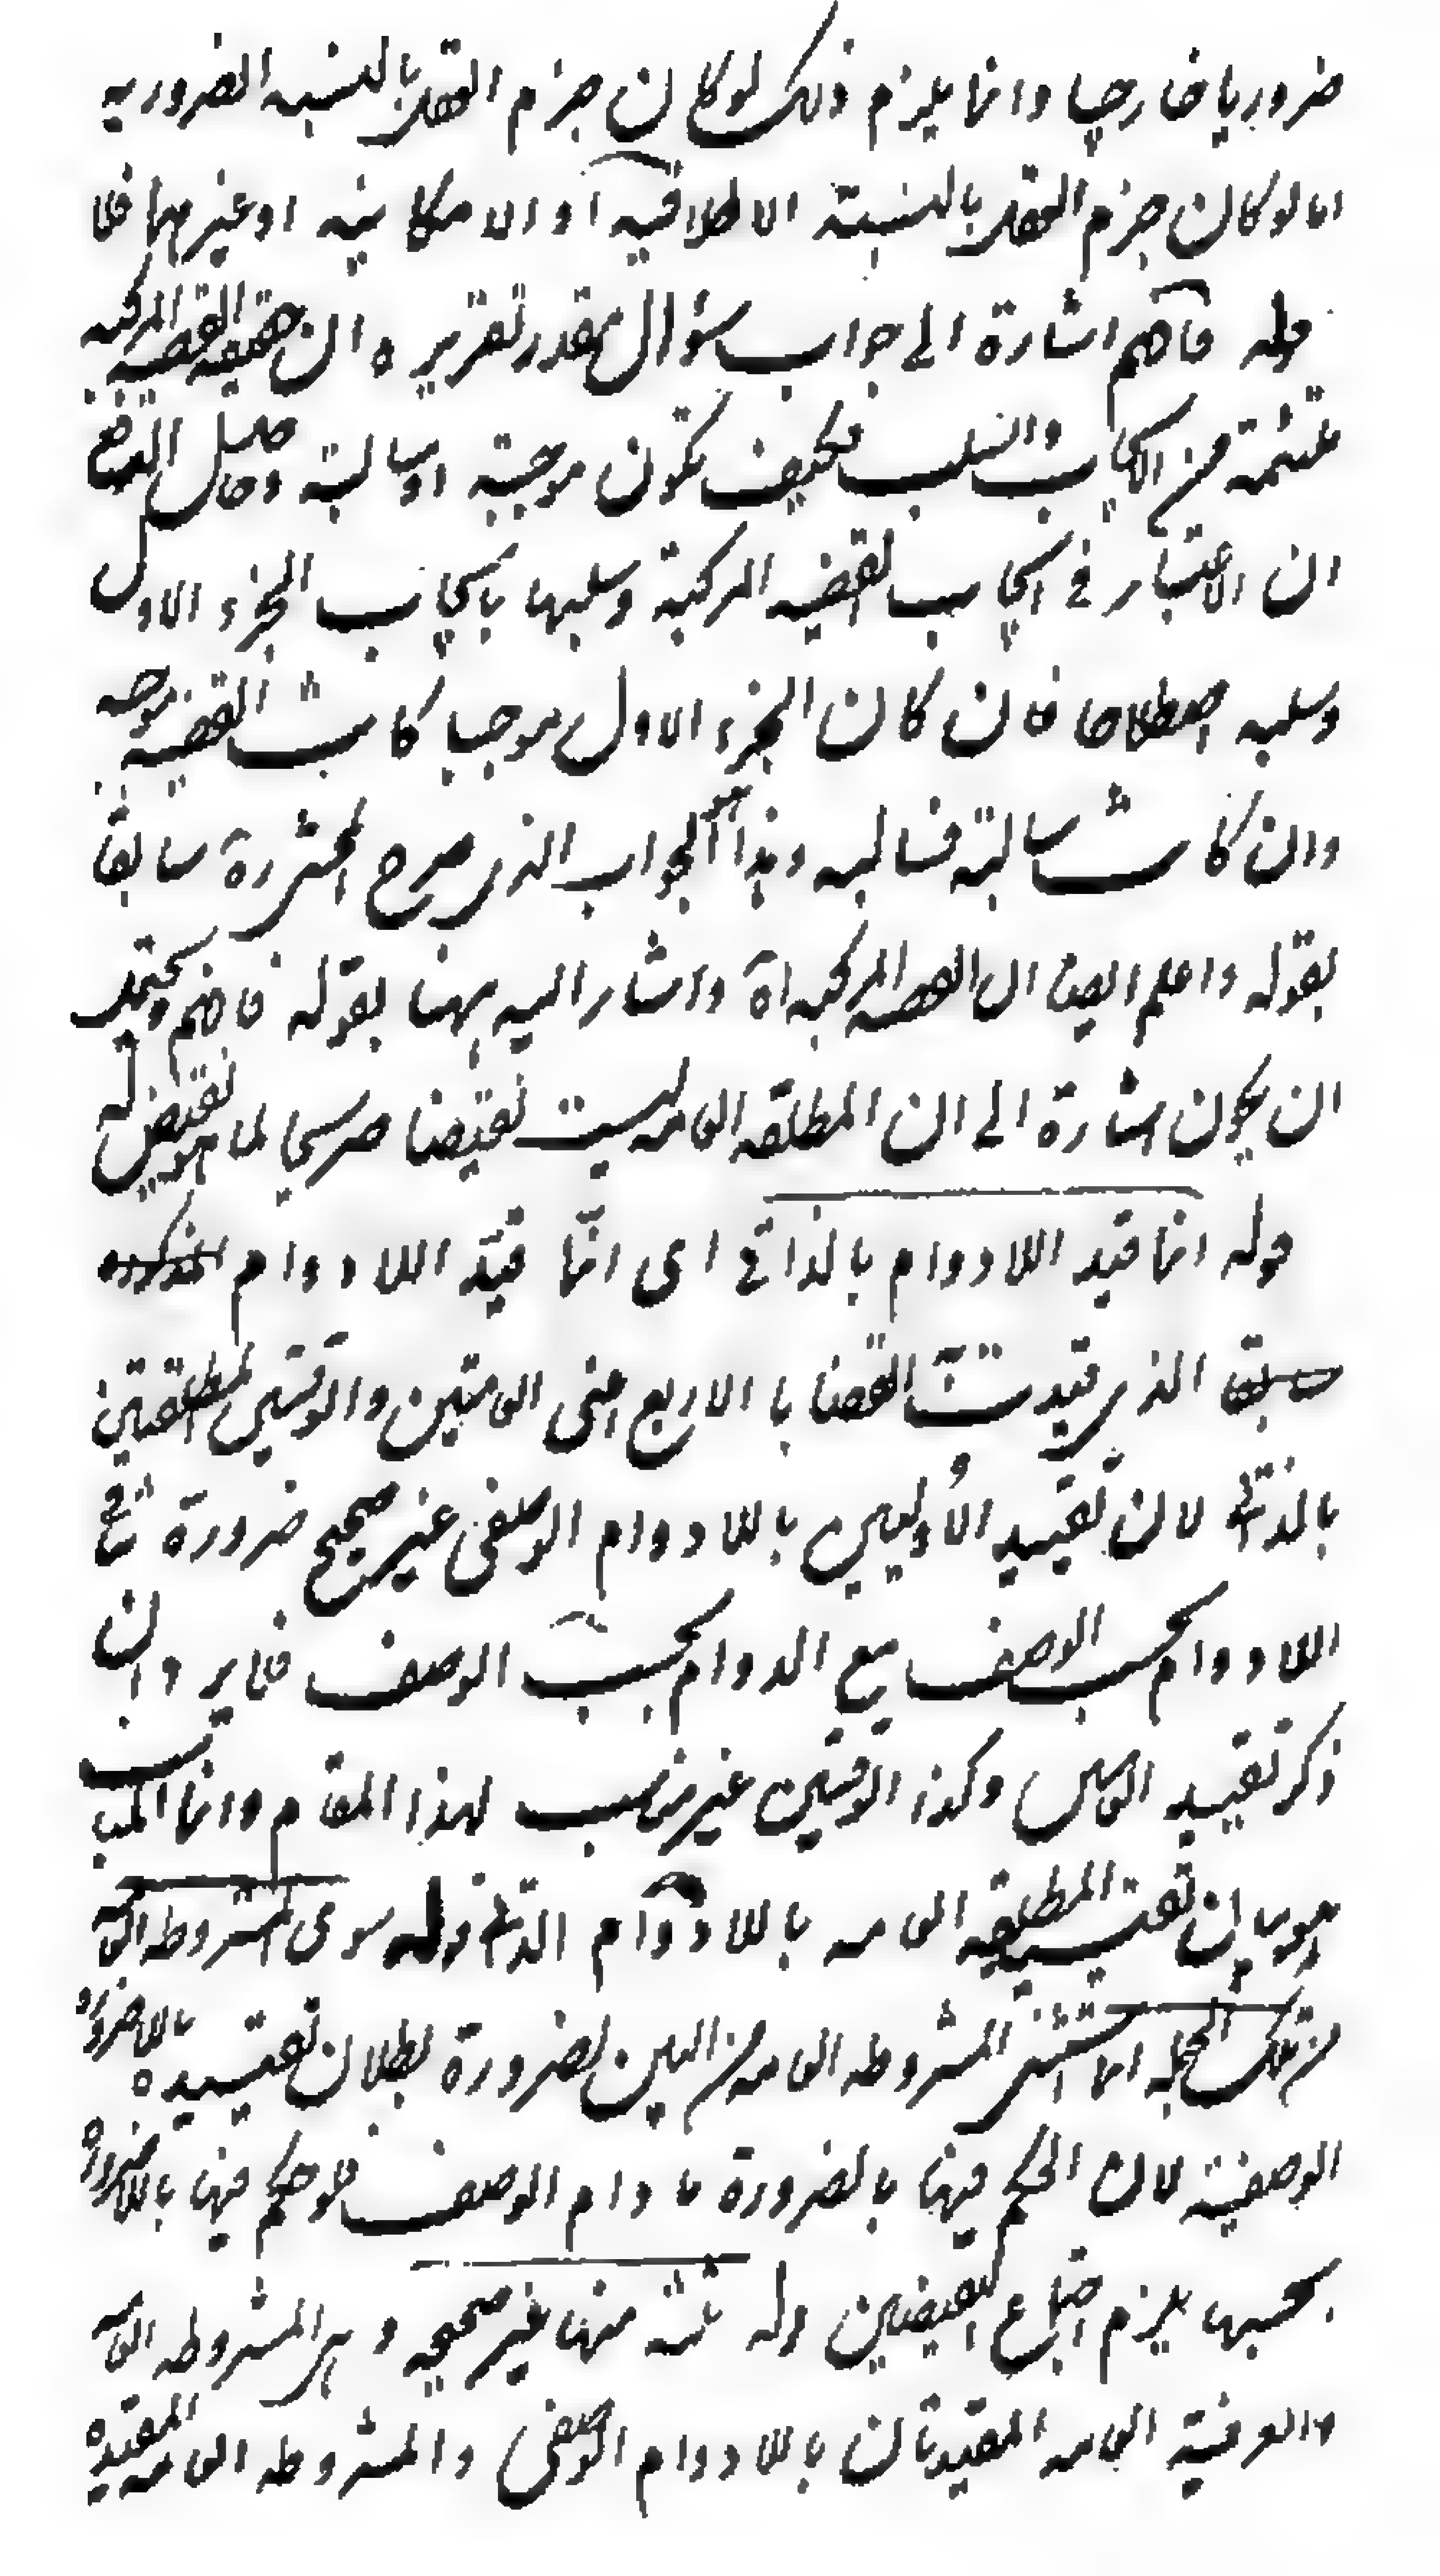 ضروريا خارجيا وانما يلزم ذلك لو كان جزم العقل بالنسبه الضروريه
اما لو كان جزم العقل بالنسبته الاطلاقيه او الامكانيه او غيرهما فلا
قوله فافهم اشارة الى جواب سؤال مقدر تقريره ان حقيقة القضية المركبه
ملتئمة من الايجاب والسلب فكيف تكون موجبته او سالبة وحاصل الدفع
ان الاعتبار في ايجاب القضيه المركبة وسلبها بايجاب الجزء الاول
وسلبه اصطلاحا فان كان الجزء الاول موجبا كانت القضية موجبه
وان كانت سالبة فسالبه وهذا هو الجواب الذي صرح المحشى ره سابقا
بقوله واعلم ايضا ان القضيه المركبه اه واشار اليه ههنا بقوله فافهم ويحتمل
ان يكون اشارة الى ان المطلقه العامه ليست نقيضا صريحا لما هو نقيض له
قوله انما قيد اللادوام بالذاتي اى انّما قيّد اللادوام المذكوره
سابقا الذي قيدت القضايا الاربع اعنى العامتين والوقتيتين المطلقتين
بالذاتي لان تقييد الأُوليين باللادوام الوصفى غير صحيح ضرورة تنافى
اللادوام بحسب الوصف مع الدوام بحسب الوصف فاير وان
ذكر تقييد العامتين وكذا الوقتيتين غير مناسب لهذا المقام وانما المناسب
هو بيان تقييد المطلقه العامه باللادوام الذاتي قوله سوى المشروطه العامه
من تلك الجمله انما استثنى المشروطه العامه من البين لضرورة بطلان تقييده باللاضرورة
الوصفية لان الحكم فيها بالضرورة ما دام الوصف فلو حكم فيها باللاضرورة
بحسبها يلزم اجتماع النقيضين قوله ثلثه منها غير صحيحه وهى المشروطه العامه
والعرفية العامه المقيدتان باللادوام الوصفى والمشروطه العامه المقيدة